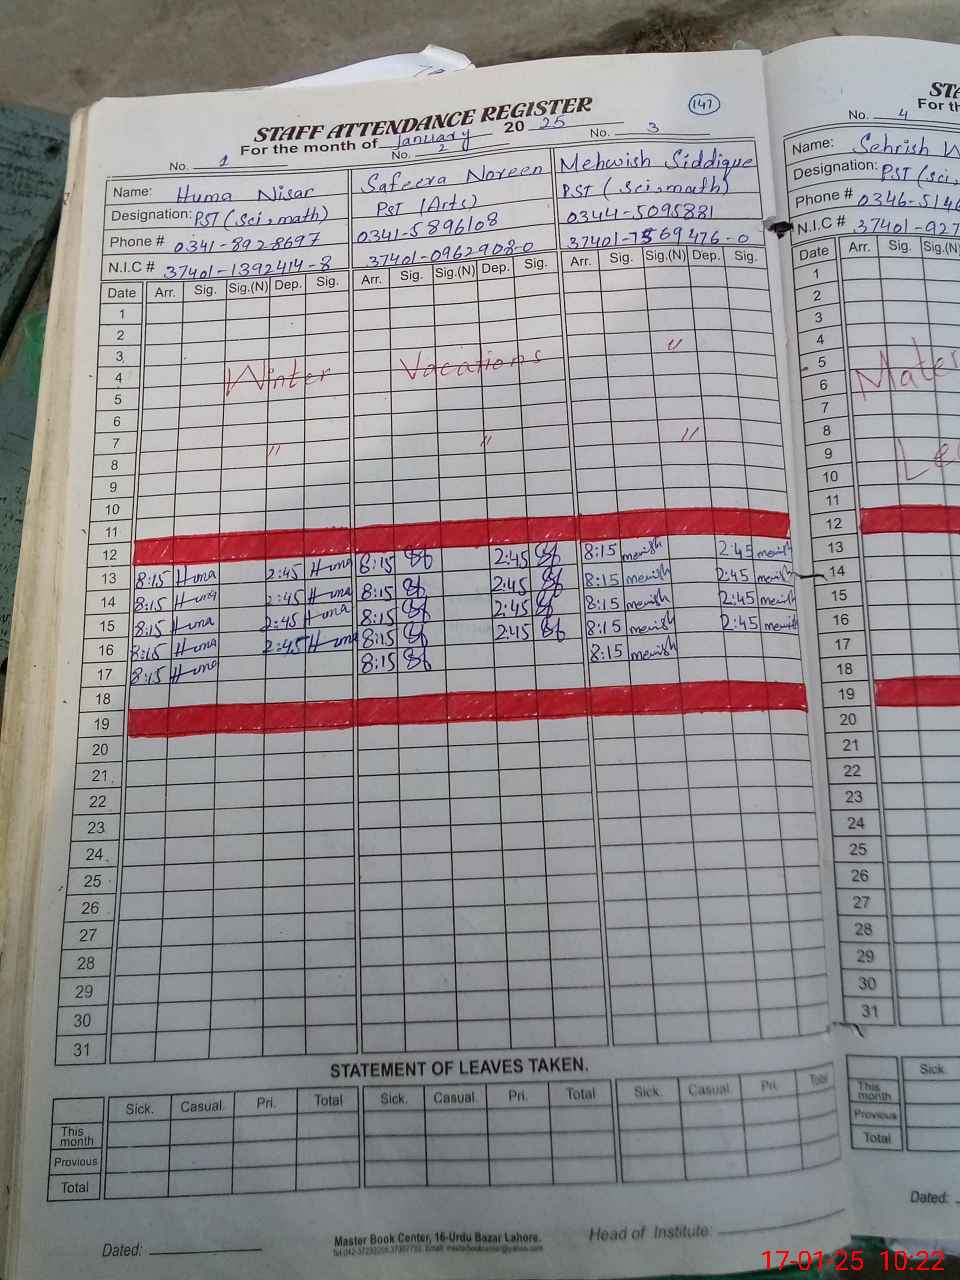 STAFF ATTENDANCE REGISTER
147
For the month of January 2025
No. 1 No. 2 No. 3
Name: Huma Nisar Safeera Noreen Mehwish Siddique
Designation: PST (Sci, math) PST (Arts) PST (Sci, math)
Phone # 0341-8928697 0341-5896108 0344-5095881
N.I.C # 37401-1392414-8 37401-0962908-0 37401-7569476-0
Date Arr. Sig. Sig.(N) Dep. Sig. Arr. Sig. Sig.(N) Dep. Sig. Arr. Sig. Sig.(N) Dep. Sig.
1
2
3 "
4 Winter Vacations
5
6
7 " " "
8
9
10
11
12
13 8:15 Huma 2:45 Huma 8:15 2:45 8:15 mewish 2:45 mewish
14 8:15 Huma 2:45 Huma 8:15 2:45 8:15 mewish 2:45 mewish
15 8:15 Huma 2:45 Huma 8:15 2:45 8:15 mewish 2:45 mewish
16 8:15 Huma 2:45 Huma 8:15 2:45 8:15 mewish 2:45 mewish
17 8:15 Huma 8:15 8:15 mewish
18
19
20
21
22
23
24
25
26
27
28
29
30
31
STATEMENT OF LEAVES TAKEN.
Sick. Casual. Pri. Total Sick. Casual. Pri. Total Sick. Casual. Pri. Total
This month
Provious
Total
Dated:
Master Book Center, 16-Urdu Bazar Lahore.
Head of Institute:
STA
For th
No. 4
Name: Sehrish
Designation: PST (Sci,
Phone # 0346-5146
N.I.C # 37401-927
Date Arr. Sig. Sig.(N)
1
2
3
4
5
6 Mate
7
8
9
10 Le
11
12
13
14
15
16
17
18
19
20
21
22
23
24
25
26
27
28
29
30
31
Sick.
This month
Provious
Total
Dated:
17-01-25 10:22